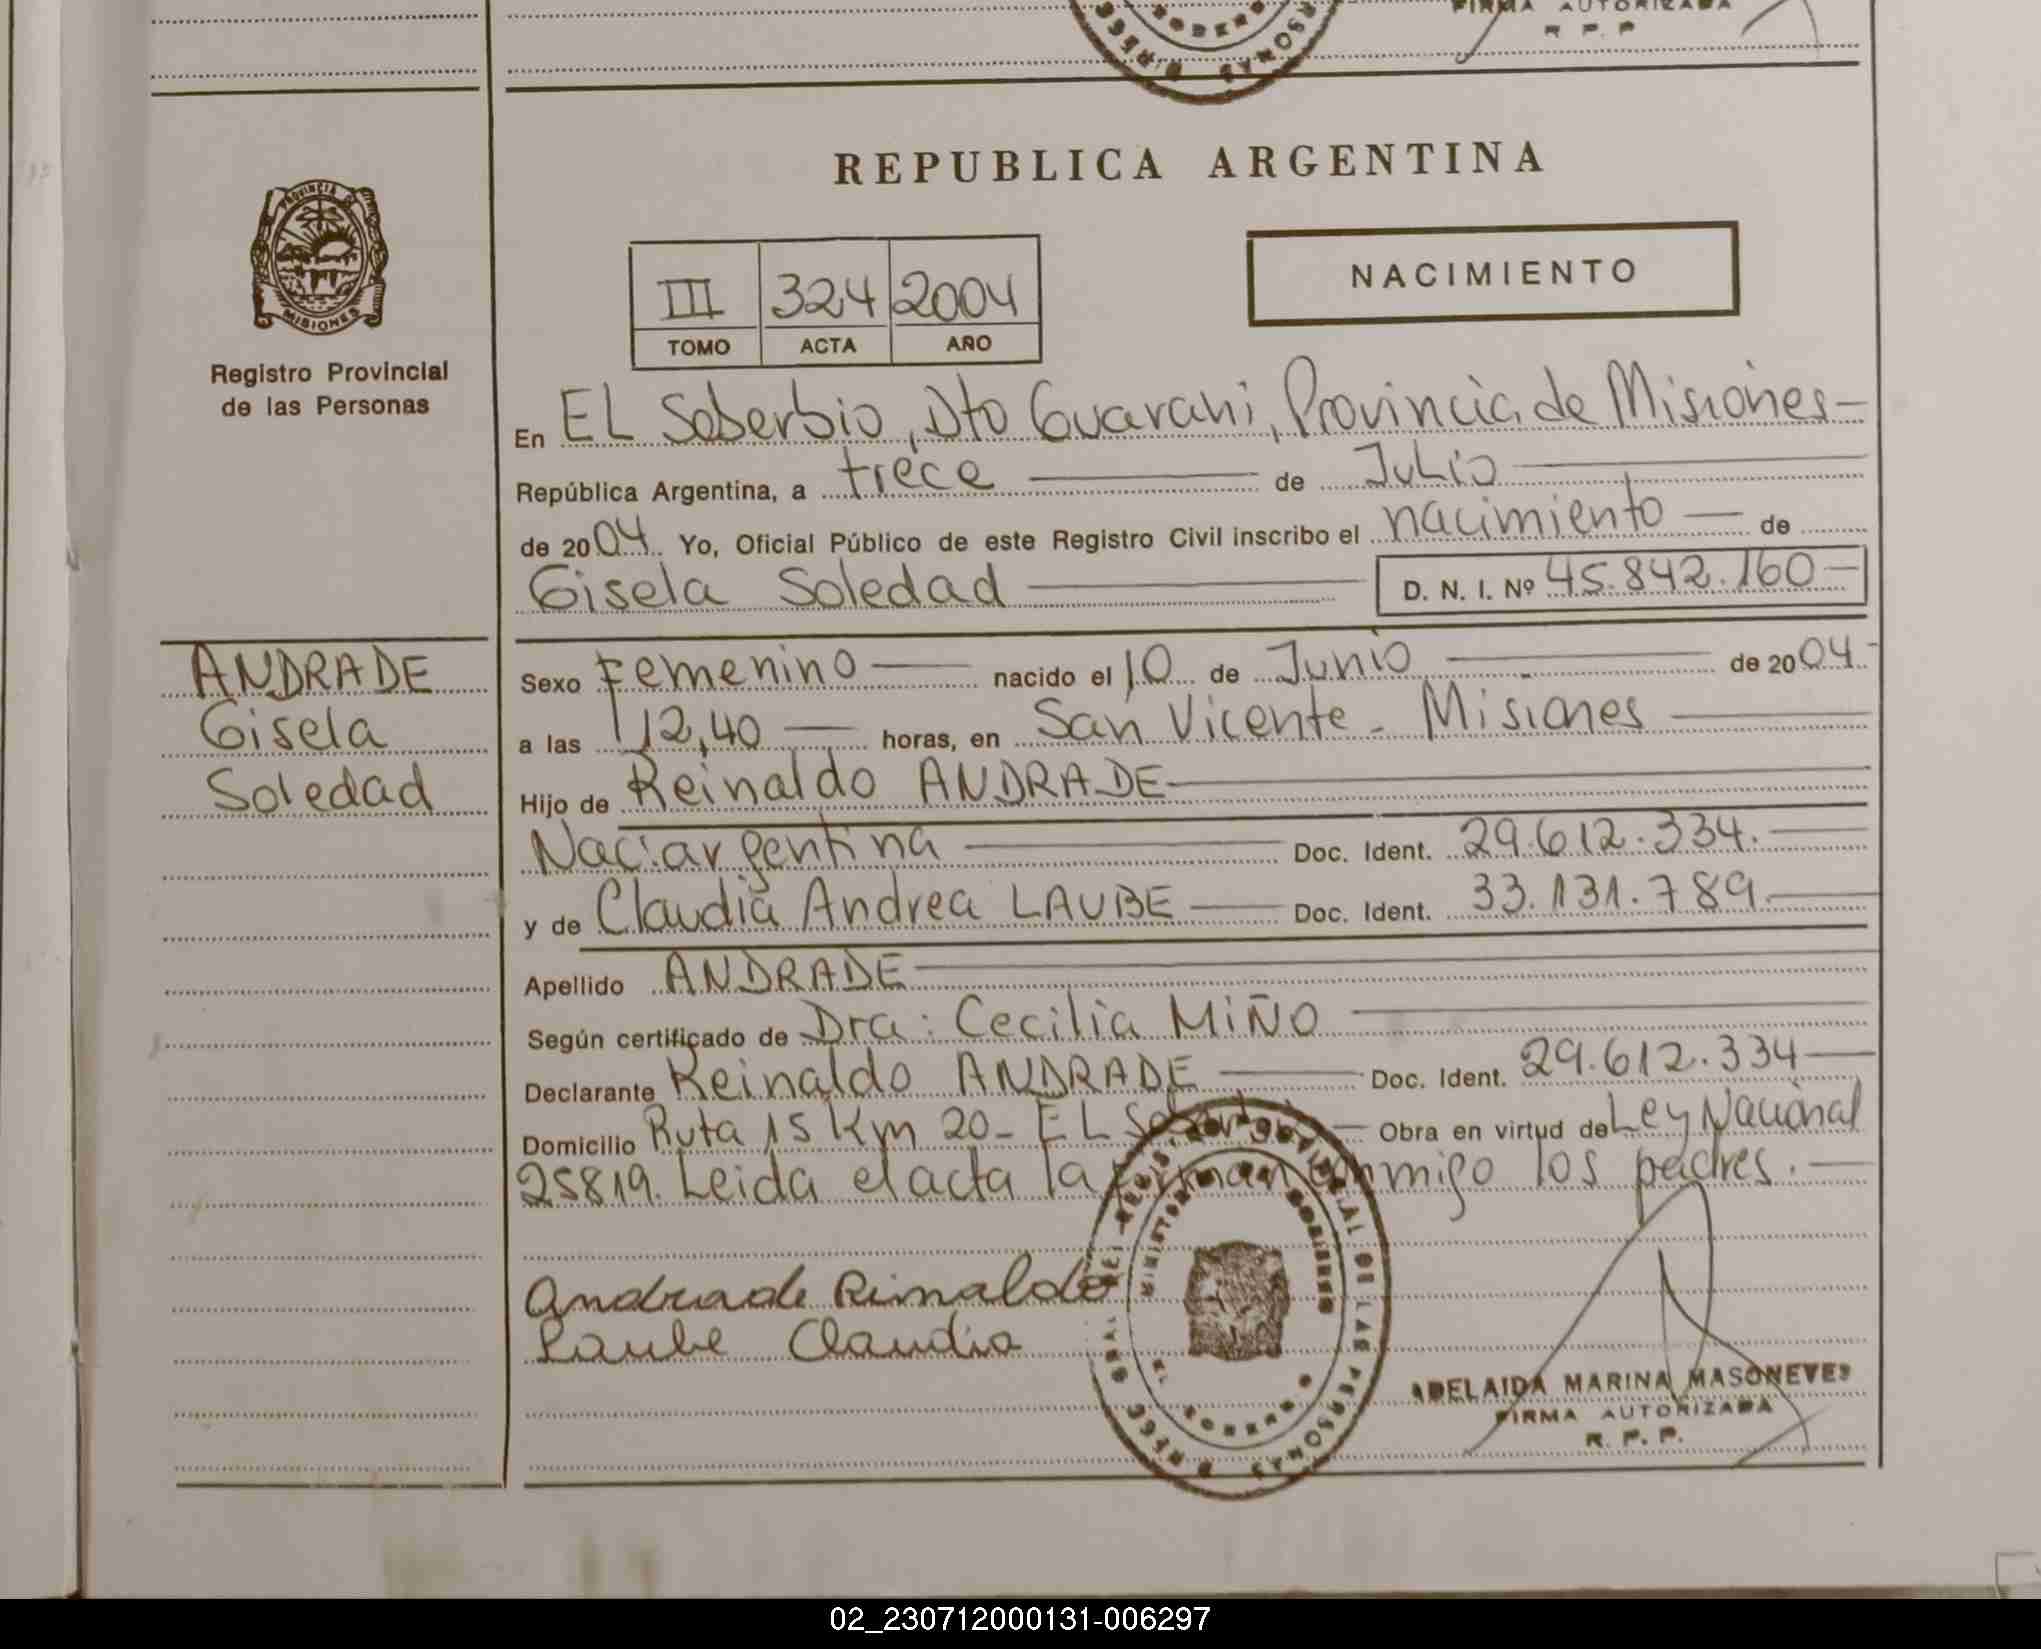 FIRMA AUTORIZADA
R P. P
REPUBLICA ARGENTINA
PROVINCIA DE
MISIONES
Registro Provincial
de las Personas
III 324 2004
TOMO ACTA AÑO
NACIMIENTO
En EL Soberbio, Dto Guarani, Provincia de Misiones-
República Argentina, a trece de Julio
de 2004 Yo, Oficial Público de este Registro Civil inscribo el nacimiento de
Gisela Soledad D. N. I. Nº 45.842.160
ANDRADE
Gisela
Soledad
Sexo Femenino nacido el 10 de Junio de 2004
a las 12,40 horas, en San Vicente - Misiones
Hijo de Reinaldo ANDRADE
Nac: argentina Doc. Ident. 29.612.334.
y de Claudia Andrea LAUBE Doc. Ident. 33.131.789
Apellido ANDRADE
Según certificado de Dra: Cecilia MIÑO
Declarante Reinaldo ANDRADE Doc. Ident. 29.612.334
Domicilio Ruta 15 Km 20- EL Soberbio Obra en virtud de Ley Nacional
25819. Leida el acta la firman conmigo los padres.
Andrade Rimaldo
Laube Claudia
ADELAIDA MARINA MASONEVES
FIRMA AUTORIZADA
R. P. P.
02_230712000131-006297